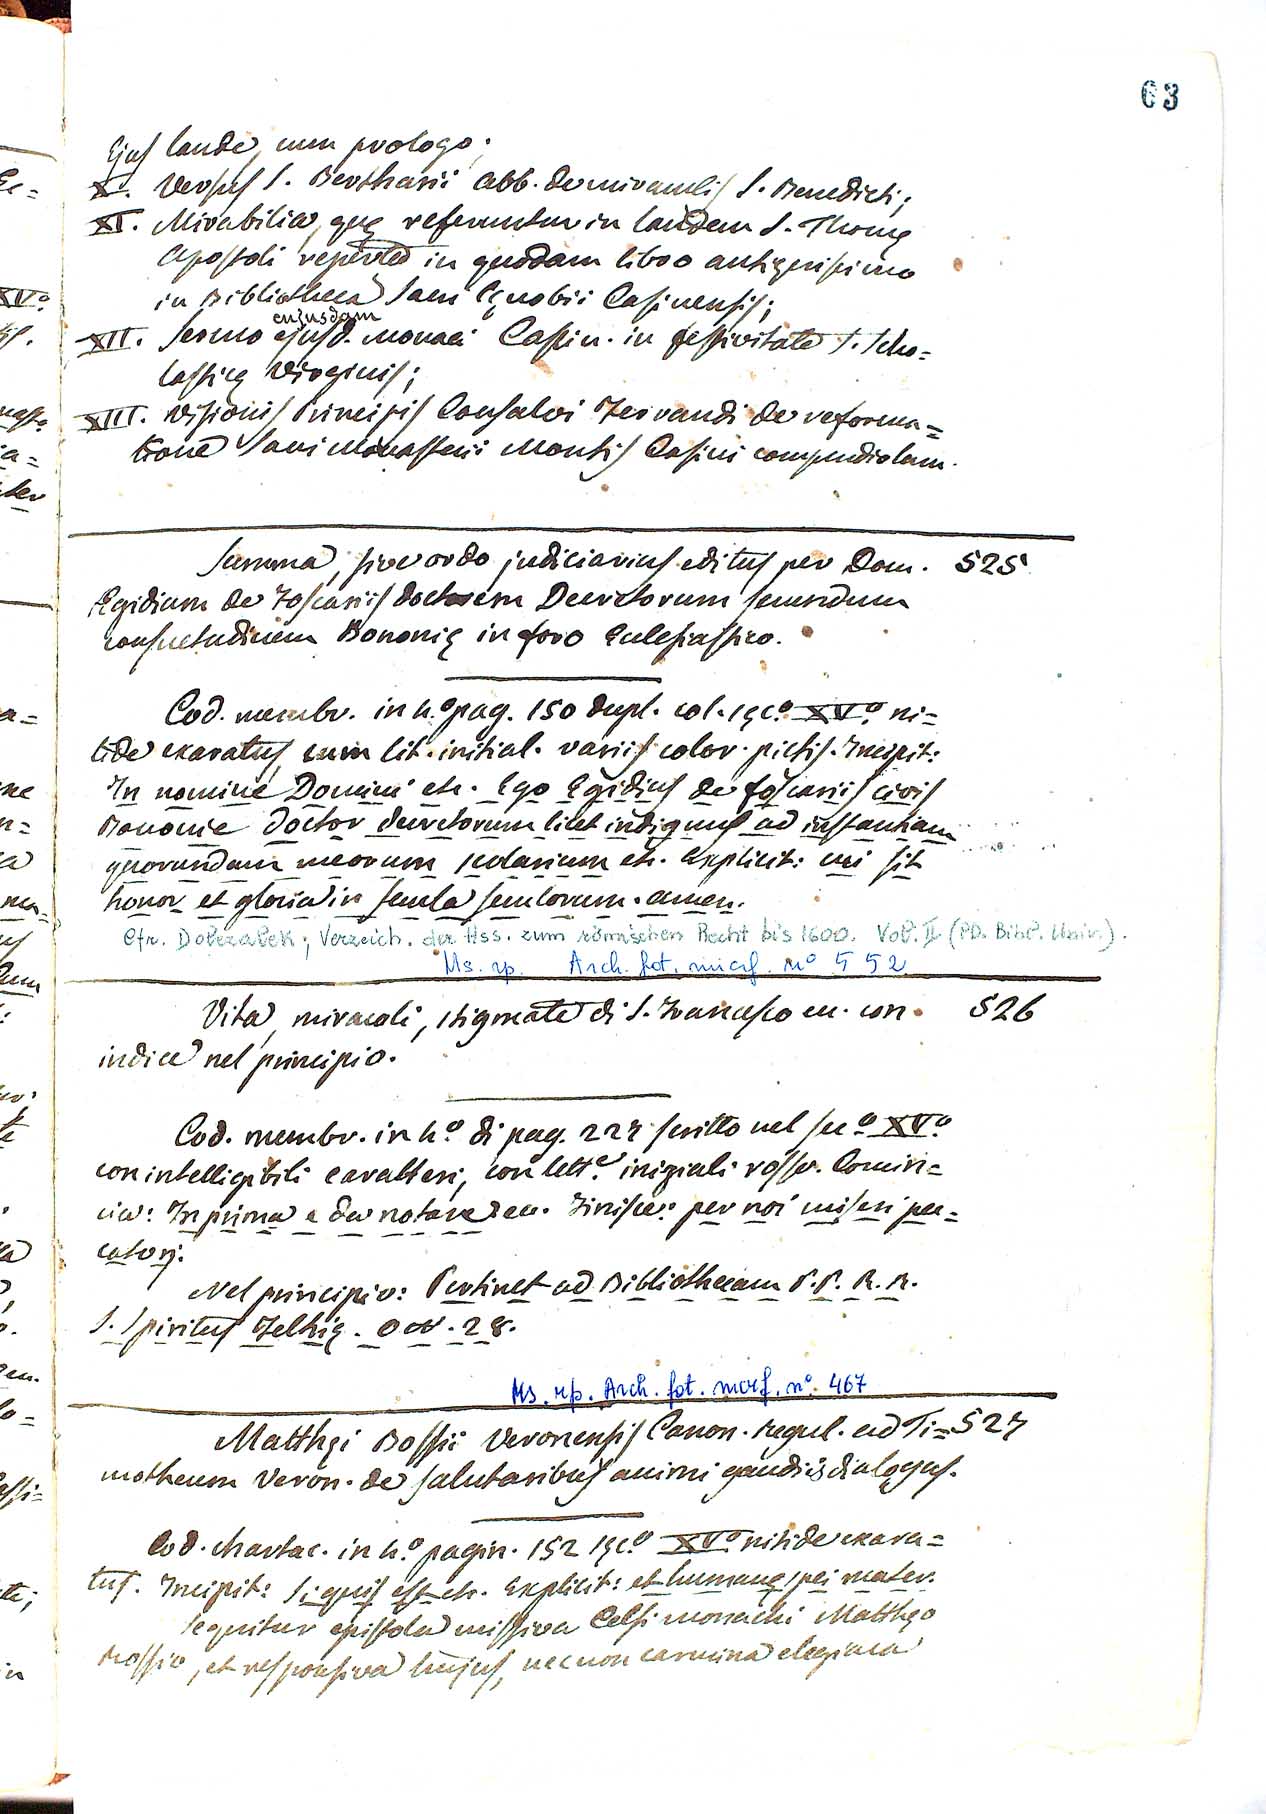 63
Ejus laude, cum prologo;
X. Versus S. Bertharii Abb. de miraculis S. Benedicti;
XI. Mirabilia, quę referuntur in laudem S. Thomę
Apostoli reperta in quodam libro antiquissimo
in Bibliotheca Sacri Cęnobii Casinensis;
cujusdam
XII. Sermo ejusd. monaci Cassin. in festivitate S. Scho=
lasticę Virginis;
XIII. Visionis Principis Consalvi Ferrandi de reforma=
tione Sacri Monasterii Montis Casini compendiolam.
Summa, sive ordo judiciarius editus per Dom. 525
Egidium de Foscariis doctorem Decretorum secundum
consuetudinem Bononię in foro Eclesiastico.
Cod. membr. in 4.º pag. 150 dupl. col. sęc.º XV.º ni=
tide exaratus, cum lit. initial. variis color. pictis. Incipit:
In nomine Domini etc. Ego Egidius de foscariis civis
Bononie doctor decretorum licet indignus ad instantiam
quorundam meorum scolarium etc. Explicit: cui sit
honor et gloria in secula seculorum. amen.
Cfr. Dolezalek; Verzeich. der Hss. zum römischen Recht bis 1600. Vol. II (PD. Bibl. Univ.).
Ms. rp. Arch. fot. microf. nº 552
Vita, miracoli, stigmate di S. Francesco ec. con 526
indice nel principio.
Cod. membr. in 4.º di pag. 227 scritto nel sec.º XV.º
con intelligibili caratteri, con lett.e iniziali rosse. Comin=
cia: In prima e da notare ec. Finisce: per noi miseri pec=
catorj.
Nel principio: Pertinet ad Bibliothecam P.P. R.R.
S. Spiritus Feltrię. Oor. 28.
Ms. rp. Arch. fot. microf. nº. 467
Matthęi Bossii Veronensis Canon. Regul. ad Ti= 527
motheum Veron. de salutaribus animi gaudiis dialogus.
Cod. chartac. in 4.º pagin. 152 sęc.º XV.º nitide exara=
tus. Incipit: Si quis est etc. Explicit: et humanę spei mater.
Sequitur epistola missiva Celsi monachi Matthęo
Bossio, et responsiva hujus, necnon carmina elegiaca